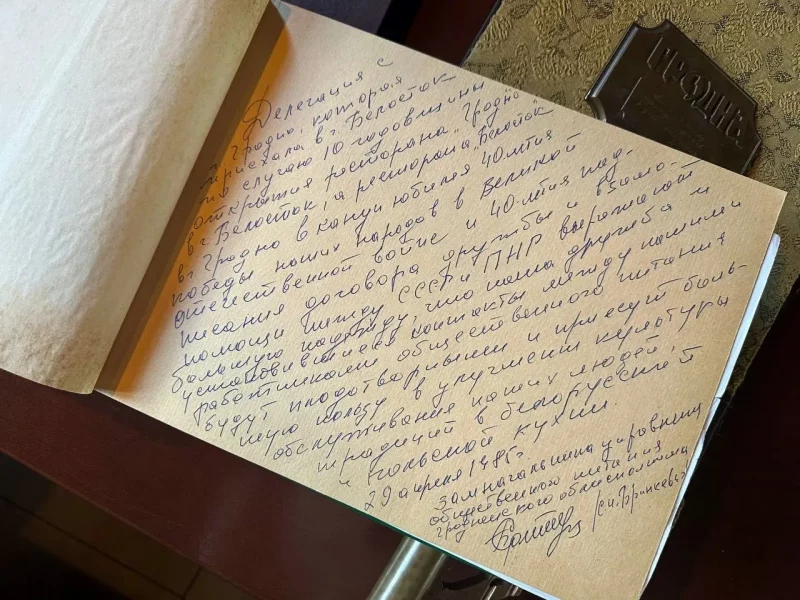 Делегация с
г. Гродно, которая
приехала в г. Белосток
по случаю 10 годовщины
открытия ресторана "Гродно"
в г. Белосток, а ресторана Белосток
в г. Гродно в канун юбилея 40 летия
победы наших народов в Великой
отечественной войне и 40-летия под-
писания договора дружбы и взаимо-
помощи между СССР и ПНР выражают
большую надежду, что наша дружба и
установившиеся контакты между нашими
работниками общественного питания
будут плодотворными и принесут боль-
шую пользу в улучшении культуры
обслуживания наших людей,
традиций в белорусской
и польской кухни.
29 апреля 1985г.
Зам начальника управления
общественного питания
гродненского облисполкома
ГРОДНЪ